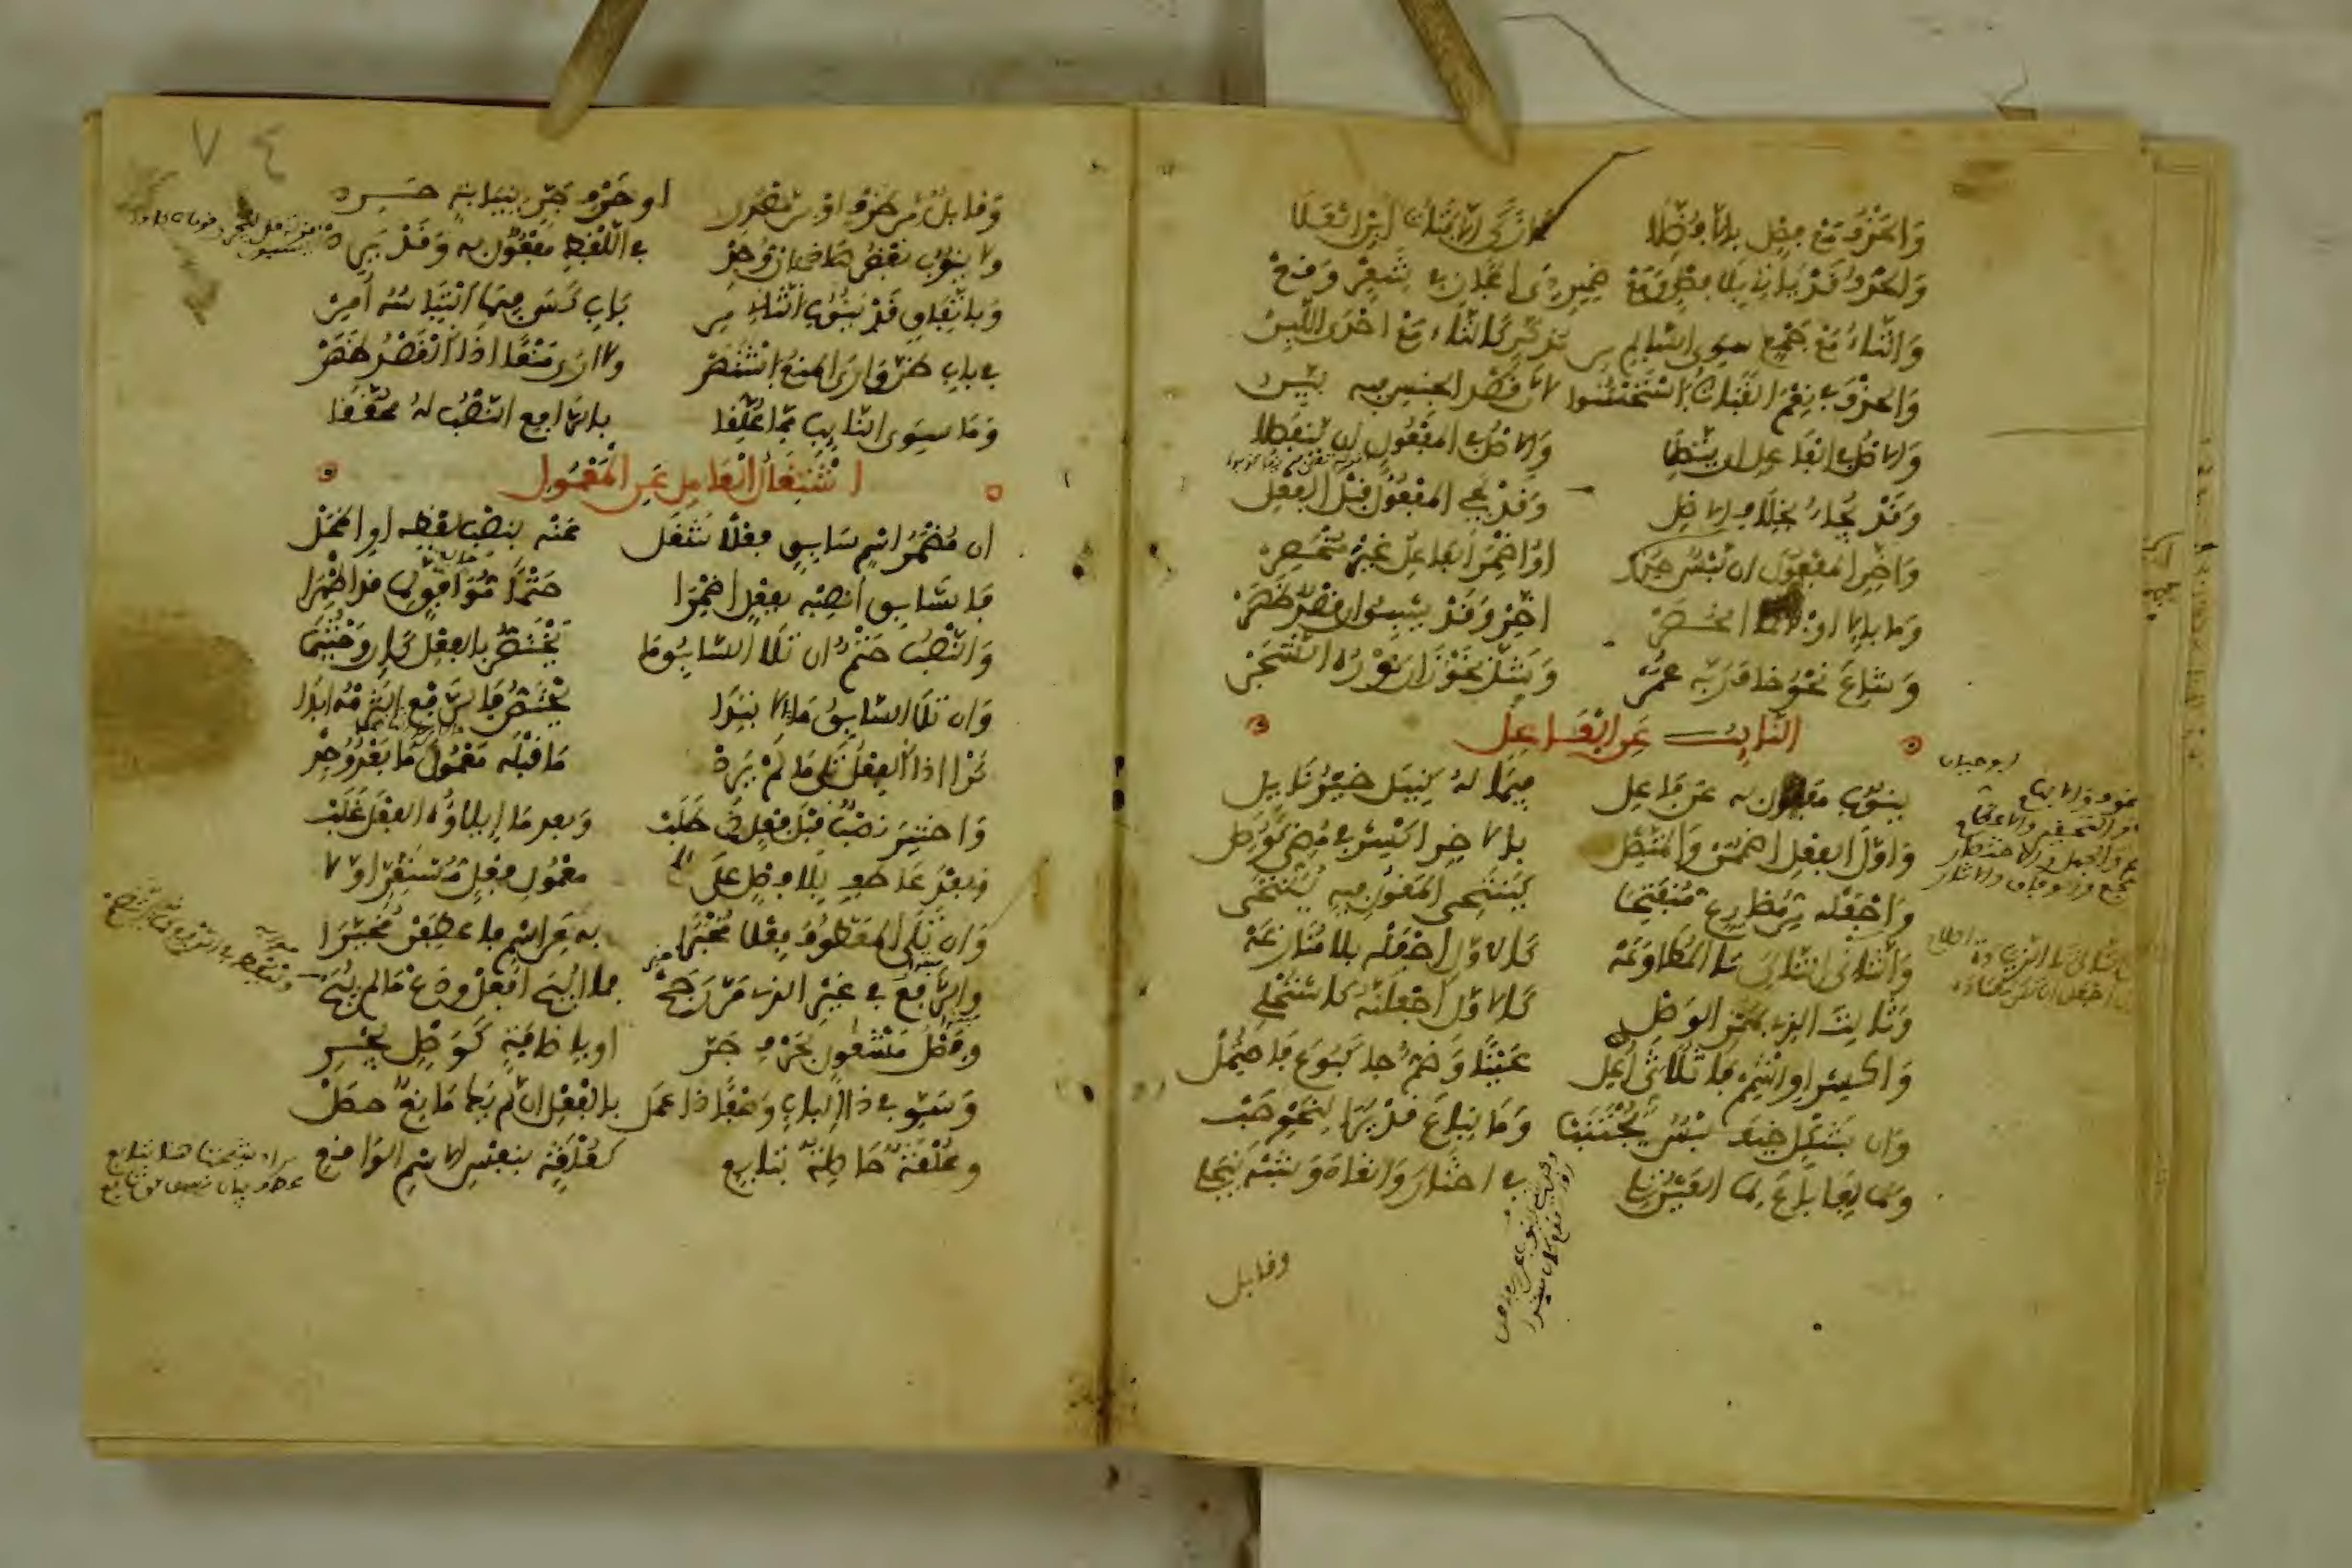 وَالحَذْفُ مَعْ فَصْلٍ بِإلاَّ فُضِّلَا كَمَا زَكَى إلاَّ فَتَاةُ ابْنِ العَلَا
وَالحَذْفُ قَدْ يَاتِي بِلَا فَصْلٍ وَمَعْ ضَمِيرِ ذِي المَجَازِ فِي شِعْرٍ وَقَعْ
وَالتَّاءُ مَعْ جَمْعٍ سِوَى السَّالِمِ مِن مُذَكَّرٍ كَالتَّاءِ مَعْ إحْدَى اللَّبِنْ
وَالحَذْفَ فِي نِعْمَ الفَتَاةُ اسْتَحْسَنُوا لأنَّ قَصْدَ الجِنْسِ فِيهِ بَيِّنُ
وَالاصْلُ فِي الفَاعِلِ ان يَتَّصِلَا وَالاصْلُ فِي المَفْعُولِ ان يَنْفَصِلَا
وَقَدْ يُجَاءُ بِخِلَافِ الاصْلِ وَقَدْ يَجِي المَفْعُولُ قَبْلَ الفِعْلِ
وَأخِّرِ المَفْعُولَ ان لَبْسٌ حُذِرْ اوْ اضْمِرَ الفَاعِلُ غَيْرَ مُنْحَصِرْ
وَمَا بِإلاَّ اوْ بِإنَّمَا انْحَصَرْ أخِّرْ وَقَدْ يَسْبِقُ ان قَصْدٌ ظَهَرْ
وَشَاعَ نَحْوُ خَافَ رَبَّهُ عُمَرْ وَشَذَّ نَحْوُ زَانَ نَوْرُهُ الشَّجَرْ
النَّايِب عَنِ الفَاعِلِ
يَنُوبُ مَفْعُولٌ بِهِ عَن فَاعِلِ فِيمَا لَهُ كَنِيلَ خَيْرُ نَايِلِ
وَاوَّلَ الفِعْلِ اضْمُمَنْ وَالمُتَّصِلْ بِالاخِرِ اكْسِرْ فِي مُضِيٍّ كَوُصِلْ
وَاجْعَلْهُ مِن مُضَارِعٍ مُنْفَتِحَا كَيَنْتَحِي المَقُولِ فِيهِ يُنْتَحَى
وَالثَّانِيَ التَّالِيَ تَا المُطَاوَعَهْ كَالاوَّلِ اجْعَلْهُ بِلَا مُنَازَعَهْ
وَثَالِثَ الذِي بِهَمْزِ الوَصْلِ كَالاوَّلِ اجْعَلَنَّهُ كَاسْتُحْلِي
وَاكْسِرْ اوِ اشْمِمْ فَا ثُلَاثِيٍّ أُعِلْ عَيْنًا وَضَمٌّ جَا كَبُوعَ فَاحْتُمِلْ
وَان بِشَكْلٍ خِيفَ لَبْسٌ يُجْتَنَبْ وَمَا لِبَاعَ قَدْ يُرَى لِنَحْوِ حَبْ
وَمَا لِفَا بَاعَ لِمَا العَيْنُ تَلِي فِي اخْتَارَ وَانْقَادَ وَشِبْهٍ يَنْجَلِي
وقابل
٧٤
وَقَابِلٌ مِن ظَرْفٍ اوْ مِن مَصْدَرِ او حَرْفِ جَرٍّ بِنِيَابَةٍ حَرِي
وَلا يَنُوبُ بَعْضُ هَذِي ان وُجِدْ فِي اللَّفْظِ مَفْعُولٌ بِهِ وَقَدْ يَرِدْ
وَبِاتِّفَاقٍ قَدْ يَنُوبُ الثَّانِ مِن بَابِ كَسَى فِيمَا الْتِبَاسُهُ أُمِنْ
فِي بَابِ ظَنَّ وَارَى المَنْعُ اشْتَهَرْ وَلا ارَى مَنْعًا اذَا القَصْدُ ظَهَرْ
وَمَا سِوَى النَّايِبِ مِمَّا عُلِّقَا بِالرَّافِعِ النَّصْبُ لَهُ مُحَقَّقَا
اشْتِغَالُ العَامِلِ عَنِ المَعْمُولِ
ان مُضْمَرُ اسْمٍ سَابِقٍ فِعْلًا شَغَلْ عَنْهُ بِنَصْبِ لَفْظِهِ اوِ المَحَلْ
فَالسَّابِقَ انْصِبْهُ بِفِعْلٍ أُضْمِرَا حَتْمًا مُوَافِقٍ لِمَا قَد اظْهِرَا
وَالنَّصْبُ حَتْمٌ ان تَلَا السَّابِقُ مَا يَخْتَصُّ بِالفِعْلِ كَإن وَحَيْثُمَا
وَان تَلَا السَّابِقُ مَا بِالابْتِدَا يَخْتَصُّ فَالرَّفْعَ الْتَزِمْهُ ابَدَا
كَذَا اذَا الفِعْلُ تَلَى مَا لَمْ يَرِدْ مَا قَبْلَهُ مَعْمُولَ مَا بَعْدُ وُجِدْ
وَاخْتِيرَ نَصْبٌ قَبْلَ فِعْلٍ ذِي طَلَبْ وَبعد مَا إيلاؤُهُ الفِعْلَ غَلَبْ
وَبَعْدَ عَاطِفٍ بِلَا فَصْلٍ عَلَى مَعْمُولِ فِعْلٍ مُسْتَقِرٍّ اوَّلَا
وَان تَلَى المَعْطُوفُ فِعْلًا مُخْبَرَا بِهِ عَنِ اسْمٍ فَاعْطِفَنْ مُخَيَّرَا
وَالرَّفْعُ فِي غَيْرِ الذِي مَرَّ رَجَحْ فَمَا ابِيحَ افْعَلْ وَدَعْ مَا لم يُبَحْ
وَفَصْلُ مَشْغُولٍ بِحَرْفِ جَرِّ او بِإضَافَةٍ كَوَصْلٍ يَجْرِي
وَسَوِّ فِي ذَا البَابِ وَصْفًا ذَا عَمَلْ بِالفِعْلِ ان لَم يَكُ مَانِعٌ حَصَلْ
وَعُلْقَةٌ حَاصِلَةٌ بِتَابِعِ كَعُلْقَةٍ بِنَفْسِ الاسْمِ الوَاقِعِ